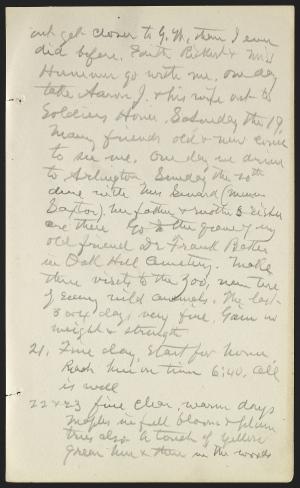 and get closer to G. W. than I ever
did before. Edith Rickert & Miss
Hummer go with me. One day
take Aaron J. & his wife out to
Soldiers Home. Saturday the 19,
Many friends old & new come
to see me. One day we drive
to Arlington, Sunday the 20th
dine with Mrs Seward (
Baxter). her father & mother & sister
are there. Go to the grave of my
old friend Dr Frank Baker
in Oak Hill Cemetery. Make
three visits to the Zoo, never tire
of seeing wild animals. The last
3 or 4 days very fine, Gain in
weight & strength
21, Fine day, start for home,
Reach here on time 6:40, all
is well
22 & 23 fine clear, warm days
Maples in full bloom & plum
trees also. A touch of yellow
green here & there in the woods